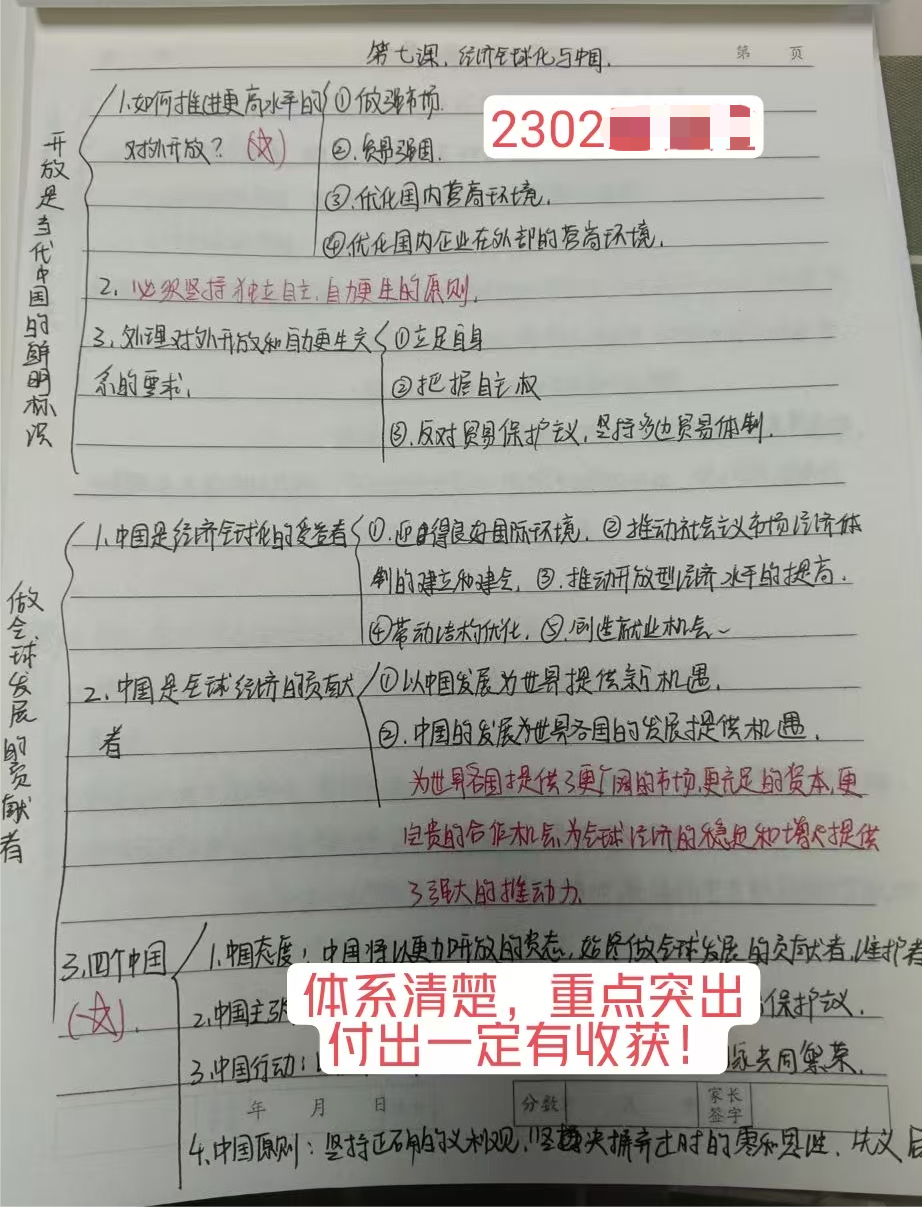 第七课、经济全球化与中国.
第 页
开放是当代中国的鲜明标识
1.如何推进更高水平的
对外开放？(☆)
①做强市场.
②.贸易强国.
③.优化国内营商环境.
④.优化国内企业在外部的营商环境.
2302
2.必须坚持独立自主、自力更生的原则.
3.处理对外开放和自力更生关
系的要求.
①立足自身
②把握自主权
③.反对贸易保护主义,坚持多边贸易体制.
做全球发展的贡献者
1.中国是经济全球化的受益者
①.迎得良好国际环境.②推动社会主义市场经济体
制的建立和建全.③.推动开放型经济水平的提高.
④带动结构优化.⑤.创造就业机会~
2.中国是全球经济的贡献
者
①以中国发展为世界提供新机遇.
②.中国的发展为世界各国的发展提供机遇.
为世界各国提供了更广阔的市场,更充足的资本,更
宝贵的合作机会,为全球经济的稳定和增长提供
了强大的推动力.
3.四个中国
(☆).
1.中国态度：中国将以更力开放的姿态,始终做全球发展的贡献者,维护者
2.中国主张
保护主义.
3.中国行动：
家共同繁荣.
体系清楚，重点突出
付出一定有收获！
年 月 日
分数
家长
签字
4.中国原则：坚持正确的义利观,坚决摒弃过时的零和思维.先义后